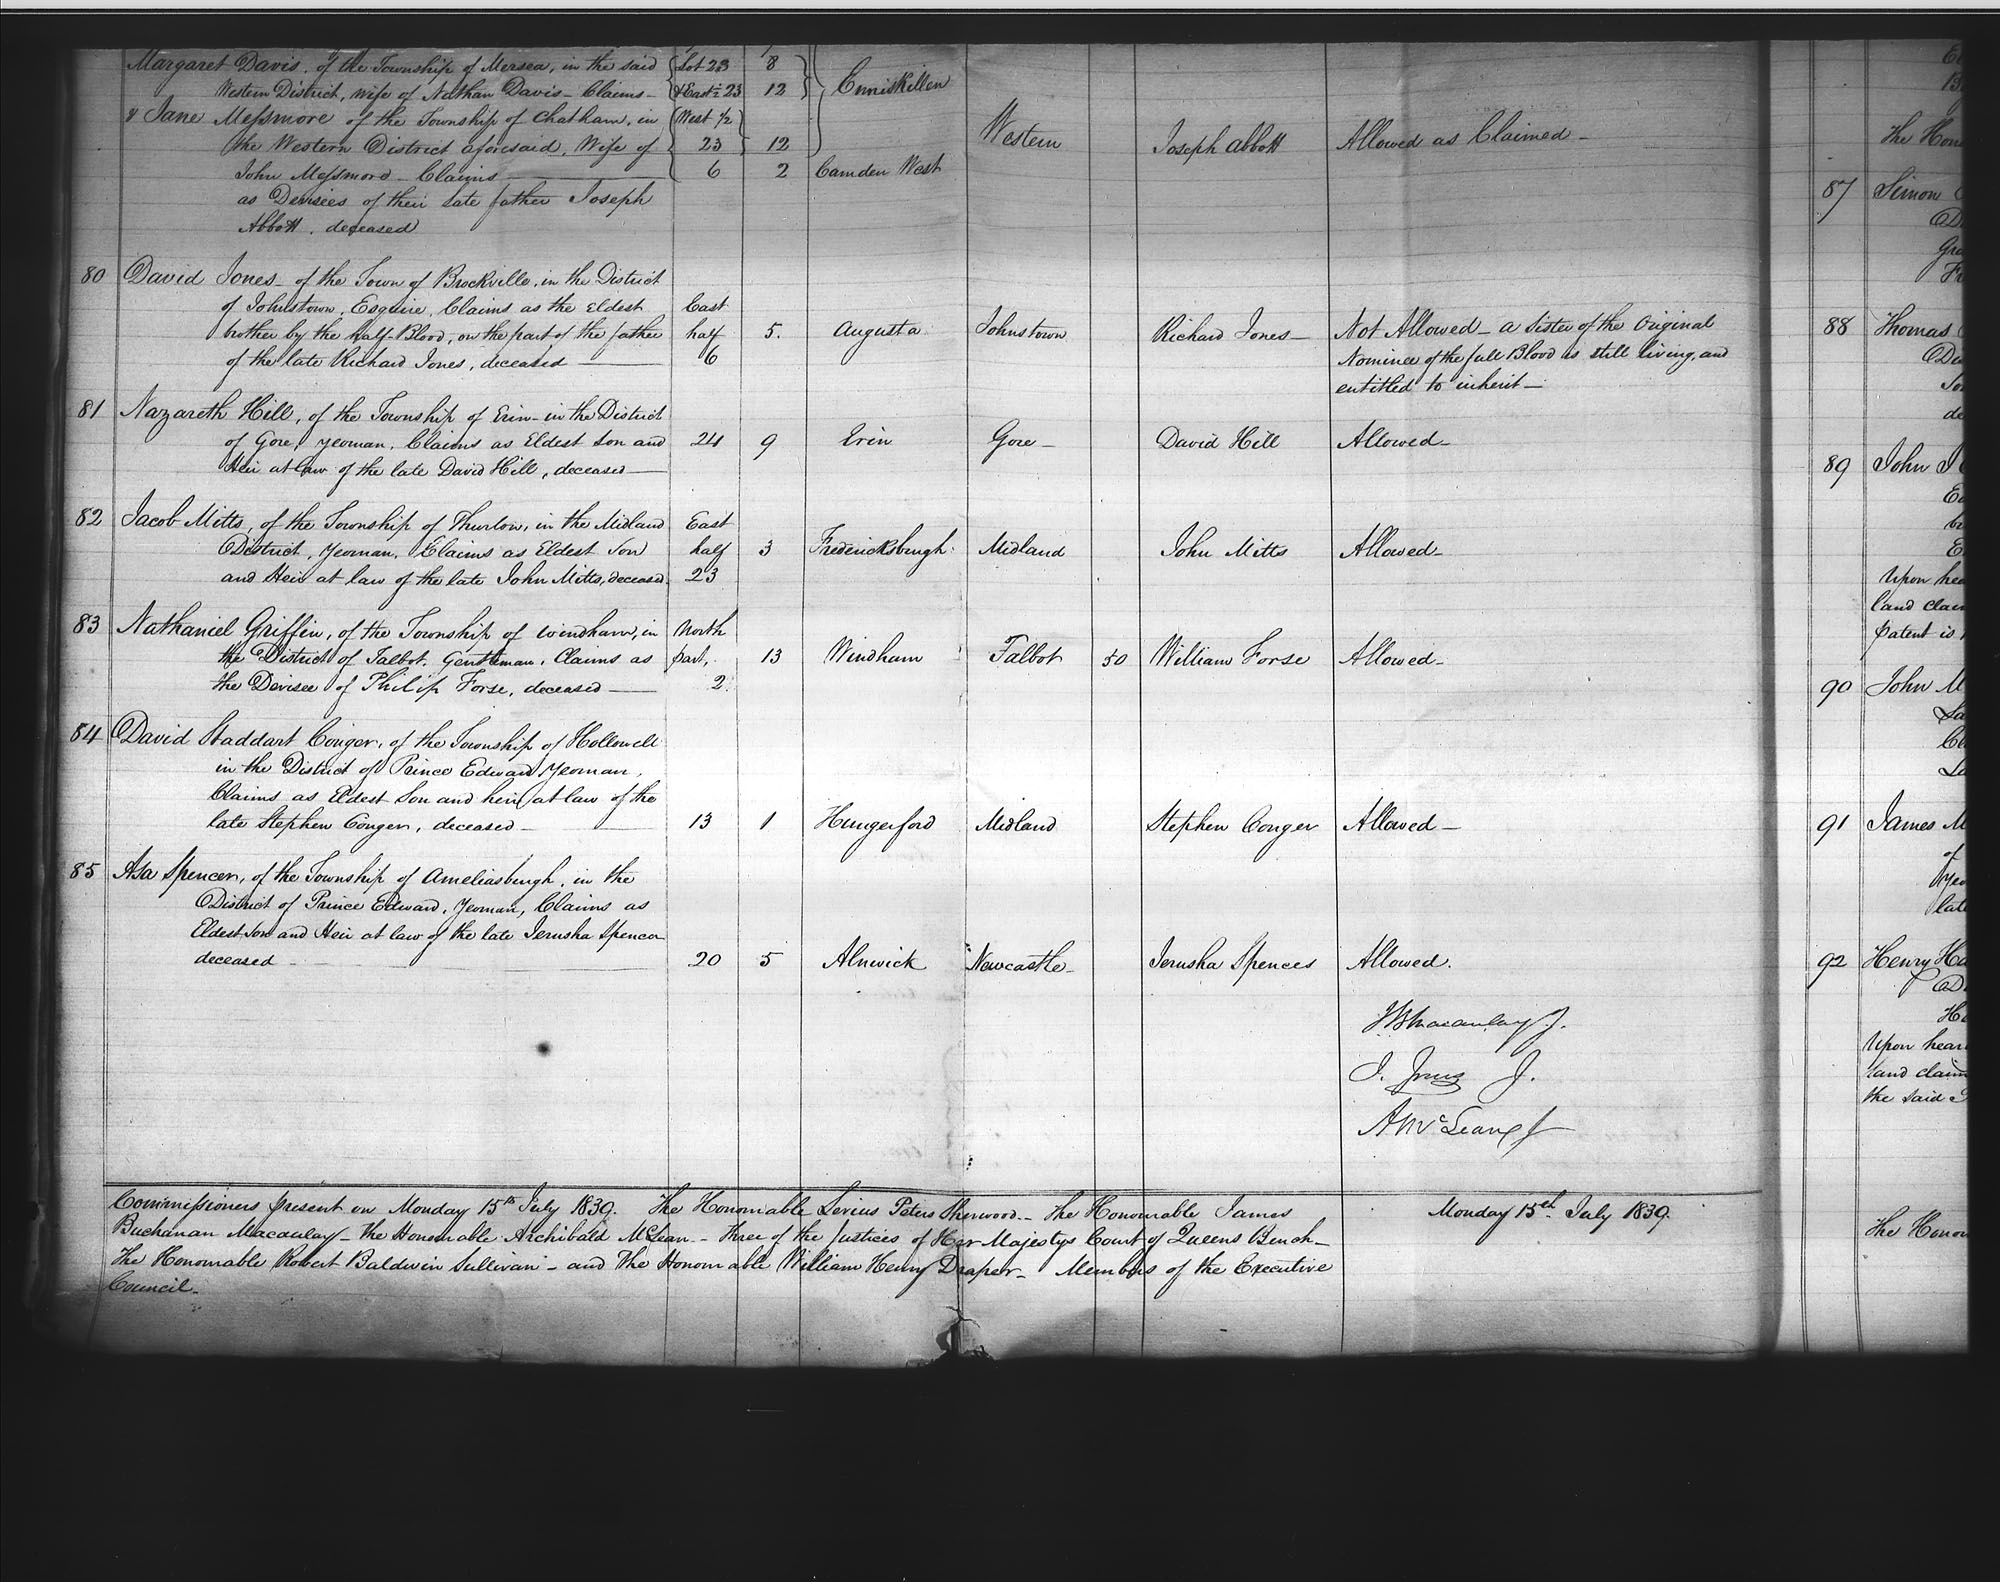 Margaret Davis, of the Township of Mersea, in the said { Lot 23 8
Western District, wife of Nathan Davis - Claims - { & East ½ 23 12 } Enniskillen
& Jane Messmore of the Township of Chatham, in { West 1/2
the Western District aforesaid, Wife of { 23 } 12 Western Joseph Abbott Allowed as Claimed -
John Messmore - Claims - 6 2 Camden West
as Devisees of their late father Joseph
Abbott, deceased
80 David Jones - of the Town of Brockville, in the District
of Johnstown, Esquire, Claims as the Eldest East
brother by the half-Blood, on the part of the father half 5. Augusta Johnstown Richard Jones - Not Allowed - a Sister of the Original
of the late Richard Jones, deceased - 6 Nominee of the full Blood is still living, and
entitled to inherit -
81 Nazareth Hill, of the Township of Erin - in the District
of Gore, yeoman, Claims as Eldest Son and 24 9 Erin Gore - David Hill Allowed -
Heir at law of the late David Hill, deceased -
82 Jacob Mitts, of the Township of Thurlow, in the Midland East
District, Yeoman, Claims as Eldest Son half 3 Fredericksburgh Midland John Mitts Allowed -
and Heir at law of the late John Mitts, deceased 23
83 Nathaniel Griffin, of the Township of Windham, in North
the District of Talbot, Gentleman, Claims as part, 13 Windham Talbot 50 William Forse Allowed -
the Devisee of Philip Forse, deceased - 2.
84 David Staddart Conger, of the Township of Hollowell
in the District of Prince Edward Yeoman,
Claims as Eldest Son and heir at law of the
late Stephen Conger, deceased - 13 1 Hungerford Midland Stephen Conger Allowed -
85 Asa Spencer, of the Township of Ameliasburgh, in the
District of Prince Edward, Yeoman, Claims as
Eldest Son and Heir at law of the late Jerusha Spencer
deceased - 20 5 Alnwick Newcastle - Jerusha Spencer Allowed.
J B Macaulay J.
J. Jones J.
A McLean J
Commissioners present on Monday 15th July 1839. The Honorable Levius Peters Sherwood - The Honourable James Monday 15th July 1839.
Buchanan Macaulay - the Honourable Archibald McLean - three of the Justices of Her Majestys Court of Queens Bench -
The Honourable Robert Baldwin Sullivan - and The Honorable William Henry Draper - Members of the Executive
Council -
The Hono
87 Simon
88 Thomas
89 John
Upon hea
land clai
Patent is
90 John M
91 James M
of
late
92 Henry Ha
Upon hear
land claim
the said
The Hono